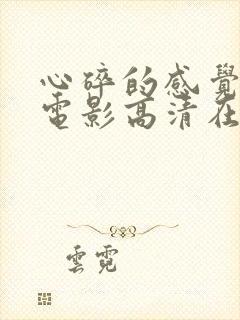 心碎的感覺
電影高清在
雲霓